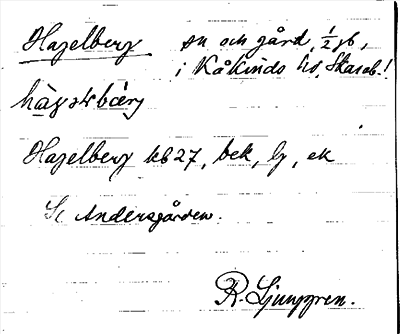 Hagelberg sn och gård, 1/2 jb,
i Kåkinds hd, Skarab.!
hàgəlbær̀j
Hagelberg kb 27, bek, lj, ek
Andersgården.
R. Ljunggren.